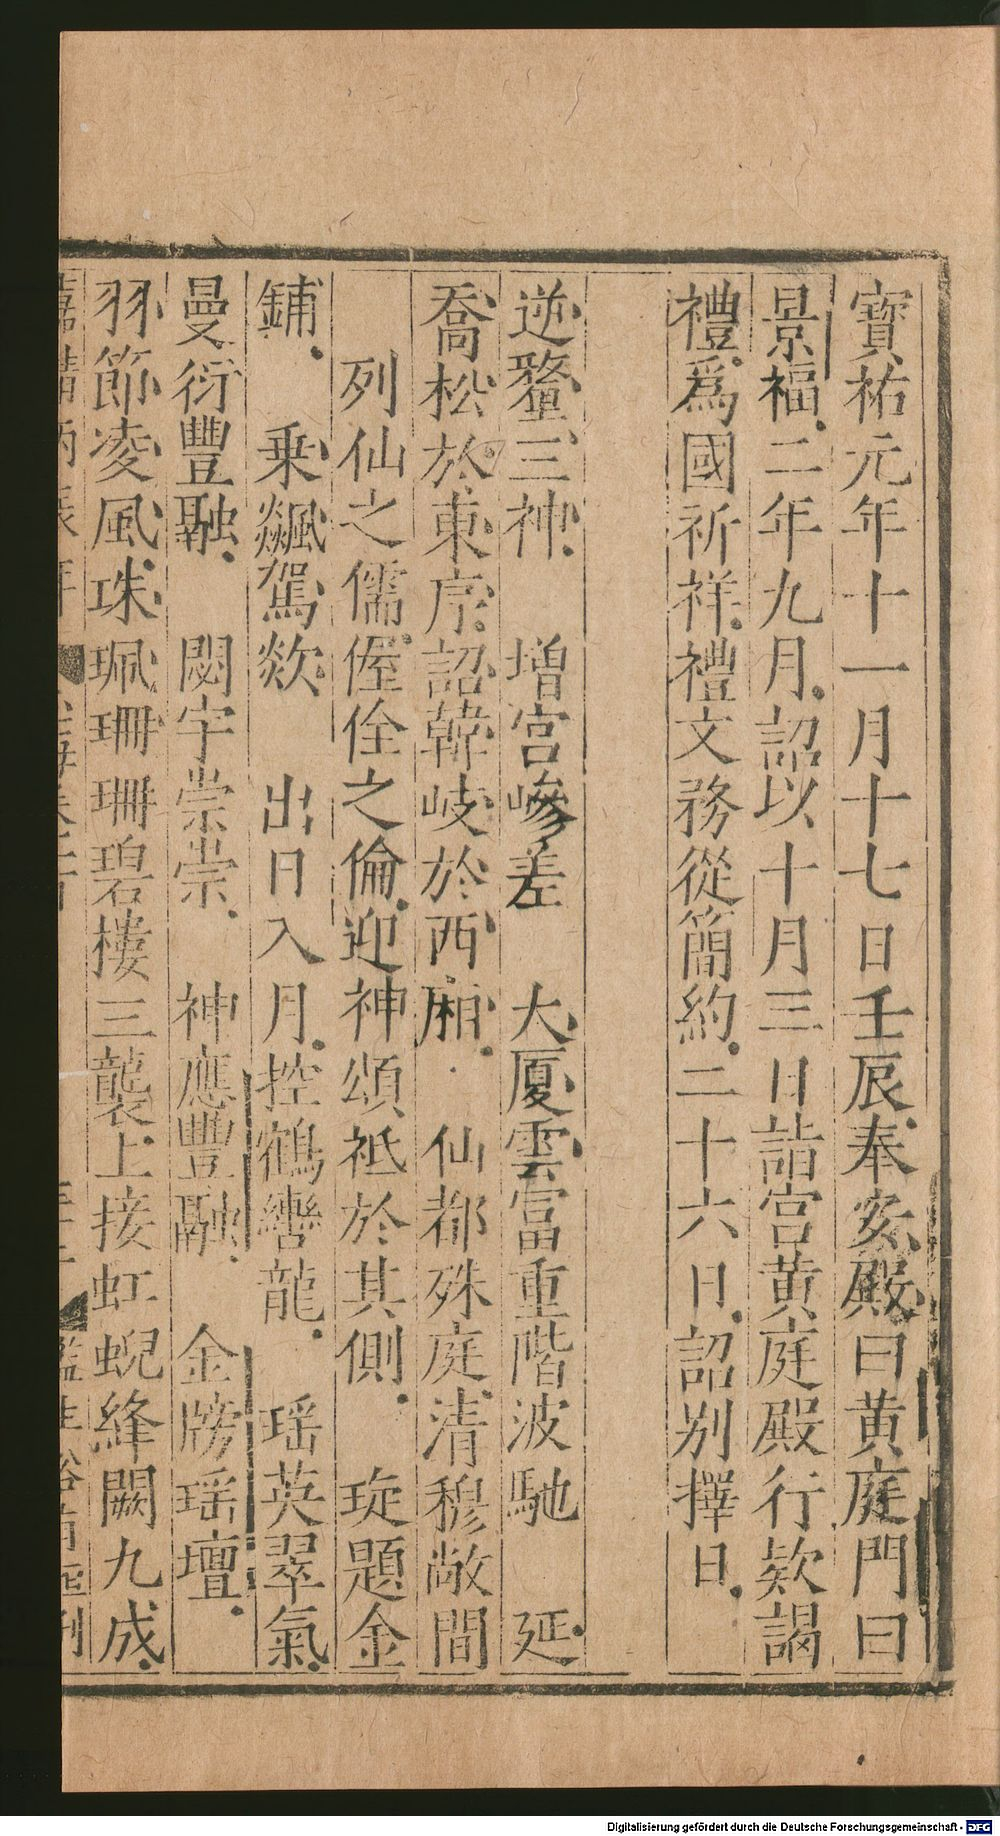 寶祐元年十一月十七日壬辰奉安殿曰黄庭門曰
景福二年九月詔以十月三日詣宫黄庭殿行欵謁
禮爲國祈祥禮文務從簡約二十六日詔别擇日
逆鼇三神　增宫嵾差　大厦雲富重階波馳　延
喬松於東序詔韓岐於西廂　仙都殊庭清穆敞閒
列仙之儒偓佺之倫迎神頌祗於其側　琁題金
鋪　乗飊駕欻　出日入月控鶴轡龍　瑶英翠氣
曼衍豐融　閟宇崇崇　神應豐融　金牓瑶壇
羽節凌風珠珮珊珊碧樓三襲上接虹蜺絳闕九成
Digitalisierung gefördert durch die Deutsche Forschungsgemeinschaft - DFG